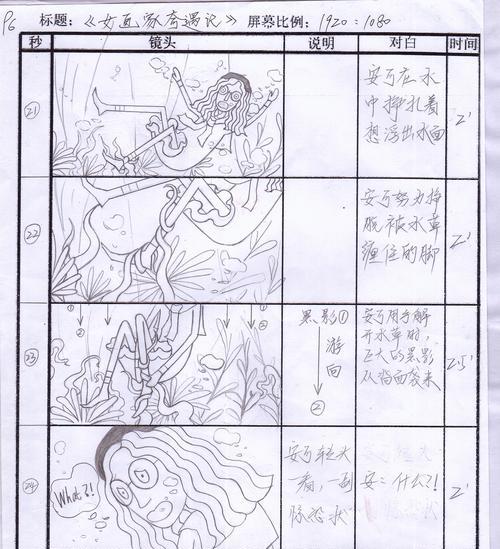 P6 标题：《女画家奇遇记》 屏幕比例：1920：1080
秒 镜头 说明 对白 时间
21
安丂在水
中挣扎着
想浮出水面
2'
22
安丂努力挣
脱被水草
缠住的脚
2'
23
① ①
② ②
黑影①
游
向
②
安丂用手解
开水草时，
巨大的黑影
从背面袭来
2.5'
24
What?!
安丂转头
一看，一副
惊恐状
安：什么？！
2'